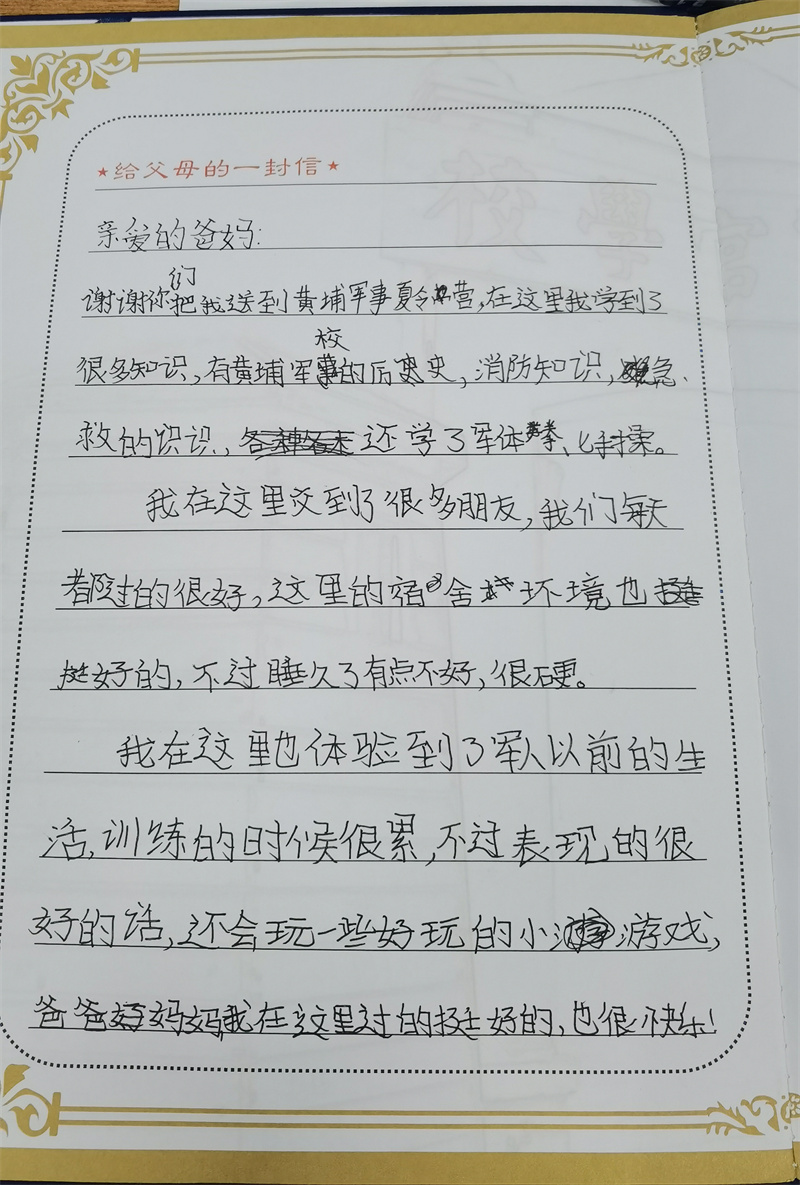 ★给父母的一封信★
亲爱的爸妈:
谢谢你们把我送到黄埔军事夏令营,在这里我学到了
很多知识,有黄埔军校的历史,消防知识,急
救的识识,还学了军体拳、手操。
我在这里交到了很多朋友,我们每天
都过的很好,这里的宿舍环境也
挺好的,不过睡久了有点不好,很硬。
我在这里也体验到了军人以前的生
活,训练的时候很累,不过表现的很
好的话,还会玩一些好玩的小游戏,
爸爸妈妈我在这里过的挺好的,也很快乐!